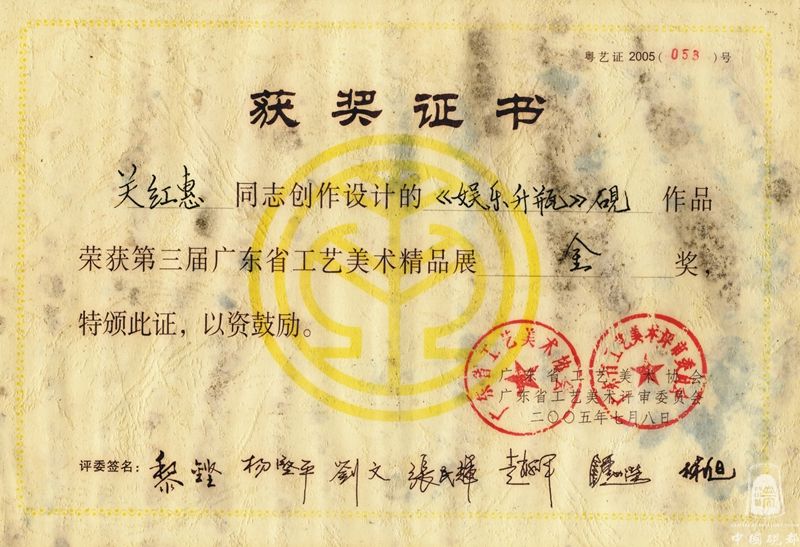 粤艺证 2005(053)号
获奖证书
关红惠 同志创作设计的《娱乐升瓶》砚 作品
荣获第三届广东省工艺美术精品展 金 奖,
特颁此证,以资鼓励。
广东省工艺美术协会
广东省工艺美术评审委员会
广东省工艺美术协会
广东省工艺美术评审委员会
二〇〇五年七月八日
评委签名: 黎铿 杨坚平 劉文 張民輝
中国砚都